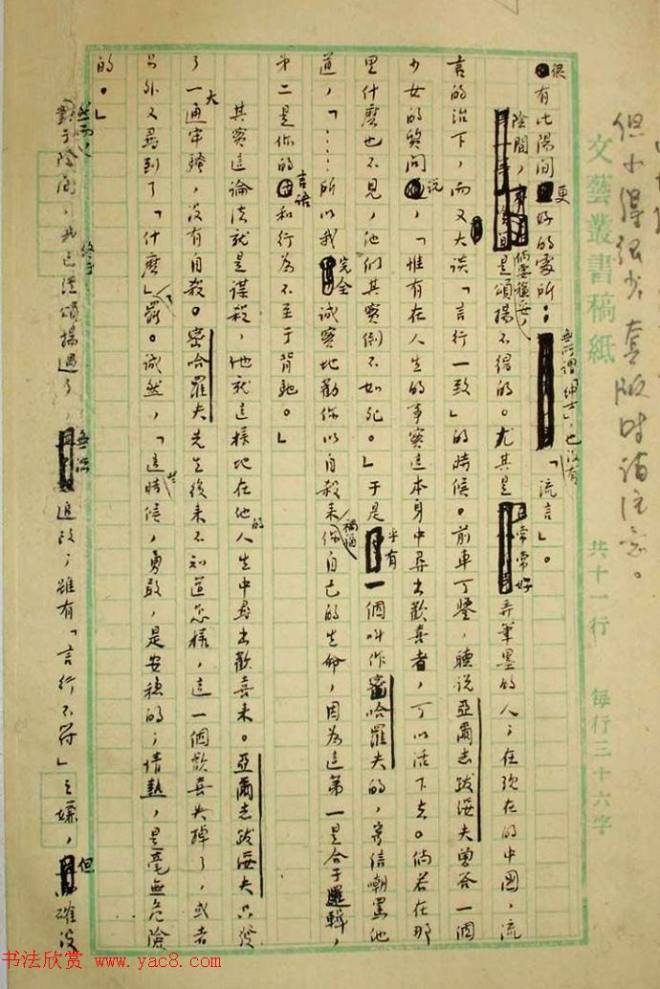 套版時請注意。
文藝叢書稿紙
共十二行 每行三十六字
很有比陽間更好的處所；無所謂「紳士」，也沒有「流言」。
陰間，倘要穩妥，是頌揚不得的。尤其是常常好弄筆墨的人，在現在的中國，流
言的治下，而又大談「言行一致」的時候。前車可鑒，聽說亞爾志跋綏夫曾答一個
少女的質問說，「惟有在人生的事實這本身中尋出歡喜者，可以活下去。倘若在那
里什麽也不見，他們其實倒不如死。」于是乎有一個叫作密哈羅夫的，寄信嘲罵他
道，「……所以我完全誠實地勸你以自殺來禍福你自己的生命，因為這第一是合于邏輯，
第二是你的言語和行為不至于背馳。」
其實這論法就是謀殺，他就這樣地在他的人生中尋出歡喜來。亞爾志跋綏夫只發
了一大通牢騷，沒有自殺。密哈羅夫先生後來不知道怎樣，這一個歡喜失掉了，或者
另外又尋到了「什麽」罷。誠然，「這些時候，勇敢，是安穩的；情熱，是毫無危險
的。」
然而，對于陰間，我終于已經頌揚過了，無從追改；雖有「言行不符」之嫌，但確沒
书法欣赏 www.yac8.com